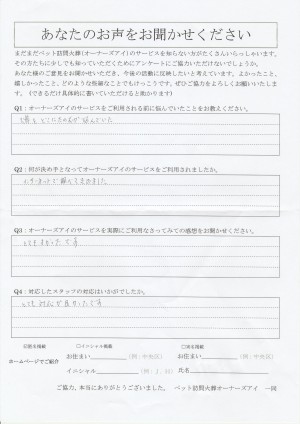 あなたのお声をお聞かせください
まだまだペット訪問火葬(オーナーズアイ)のサービスを知らない方がたくさんいらっしゃいます。
その方たちに少しでも知っていただくためにアンケートにご協力いただけないでしょうか。
あなた様のご意見をお聞かせいただき、今後の活動に反映したいと考えています。よかったこと、
嬉しかったこと、どのような些細なことでもけっこうです。ぜひご協力をよろしくお願いいたしま
す。(できるだけ具体的に書いていただけると助かります)
Q1：オーナーズアイのサービスをご利用される前に悩んでいたことをお教えください。
Q2：何が決め手となってオーナーズアイのサービスをご利用されましたか。
インターネットで調べて決めました
Q3：オーナーズアイのサービスを実際にご利用なさってみての感想をお聞かせください。
とてもよかったです
Q4：対応したスタッフの対応はいかがでしたか。
とても対応が良かったです
イニシャル掲載
ホームページでご紹介
お住まい (例：中央区)
お住まい (例：中央区)
イニシャル (例：J.M)
氏名
ご協力、本当にありがとうございました。 ペット訪問火葬オーナーズアイ 一同